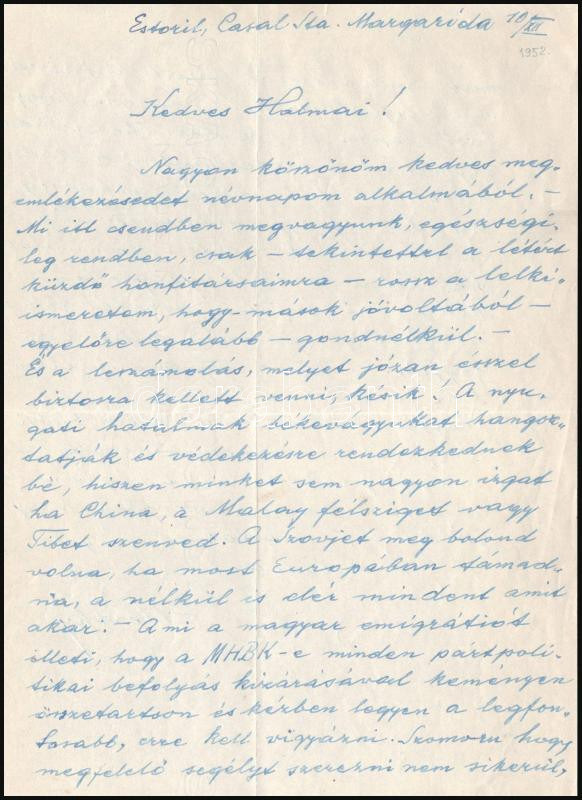 Estoril, Casal Sta. Margarida 10/XII
1952.
Kedves Halmai !
Nagyon köszönöm kedves meg-
emlékezésedet névnapom alkalmából. –
Mi itt csendben megvagyunk, egészségi-
leg rendben, csak – tekintettel a létért
küzdő honfitársaimra – rossz a lelki-
ismeretem, hogy mások jóvoltából –
egyelőre legalább – gondnélkül. –
És a leszámolás, melyet józan ésszel
biztosra kellett venni, késik! A nyu-
gati hatalmak békevágyukat hangoz-
tatják és védekezésre rendezkednek
bé, hiszen minket sem nagyon izgat
ha China, a Malay félsziget vagy
Tibet szenved. A Szovjet meg bolond
volna, ha most Európában támad-
na, a nélkül is elér mindent amit
akar. – Ami a magyar emigrátiót
illeti, hogy a MHBK-e minden pártpoli-
tikai befolyás kizárásával keményen
összetartson és kézben legyen a legfon-
tosabb, erre kell vigyázni. Szomorú hogy
megfelelő segélyt szerezni nem sikerül,